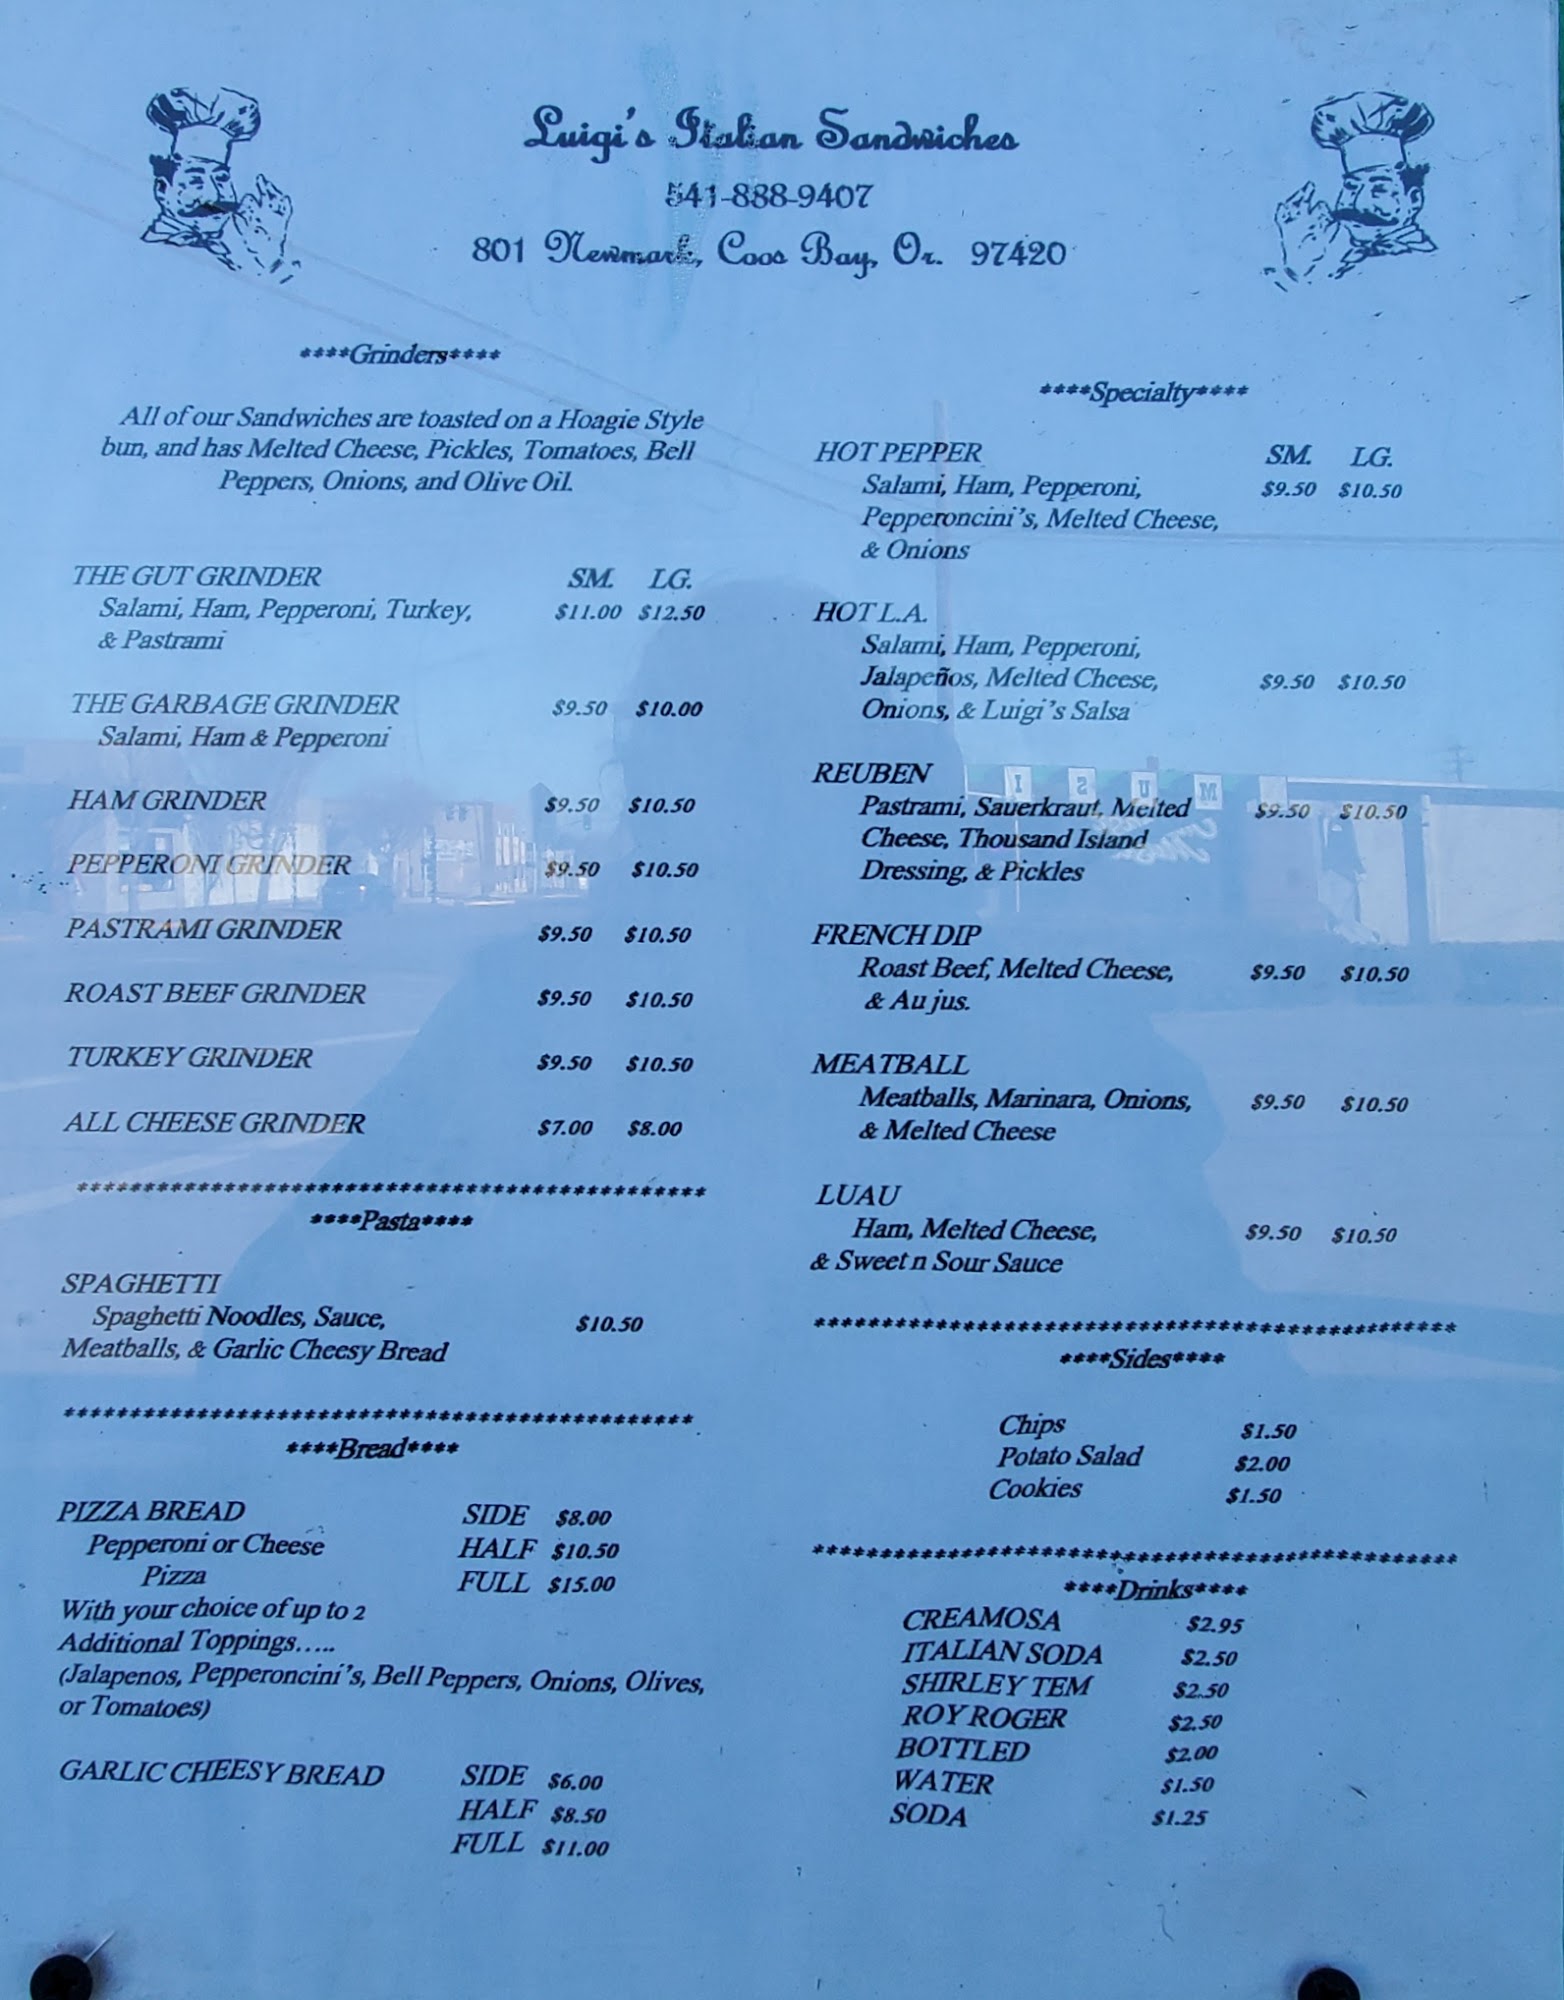 Luigi's Italian Sandwiches
541-888-9407
801 Newmark, Coos Bay, Or. 97420
****Grinders****
All of our Sandwiches are toasted on a Hoagie Style
bun, and has Melted Cheese, Pickles, Tomatoes, Bell
Peppers, Onions, and Olive Oil.
THE GUT GRINDER SM. LG.
Salami, Ham, Pepperoni, Turkey, $11.00 $12.50
& Pastrami
THE GARBAGE GRINDER $9.50 $10.00
Salami, Ham & Pepperoni
HAM GRINDER $9.50 $10.50
PEPPERONI GRINDER $9.50 $10.50
PASTRAMI GRINDER $9.50 $10.50
ROAST BEEF GRINDER $9.50 $10.50
TURKEY GRINDER $9.50 $10.50
ALL CHEESE GRINDER $7.00 $8.00
************************************************
****Pasta****
SPAGHETTI
Spaghetti Noodles, Sauce, $10.50
Meatballs, & Garlic Cheesy Bread
************************************************
****Bread****
PIZZA BREAD SIDE $8.00
Pepperoni or Cheese HALF $10.50
Pizza FULL $15.00
With your choice of up to 2
Additional Toppings.....
(Jalapenos, Pepperoncini's, Bell Peppers, Onions, Olives,
or Tomatoes)
GARLIC CHEESY BREAD SIDE $6.00
HALF $8.50
FULL $11.00
****Specialty****
HOT PEPPER SM. LG.
Salami, Ham, Pepperoni, $9.50 $10.50
Pepperoncini's, Melted Cheese,
& Onions
HOT L.A.
Salami, Ham, Pepperoni,
Jalapeños, Melted Cheese, $9.50 $10.50
Onions, & Luigi's Salsa
REUBEN
Pastrami, Sauerkraut, Melted $9.50 $10.50
Cheese, Thousand Island
Dressing, & Pickles
FRENCH DIP
Roast Beef, Melted Cheese, $9.50 $10.50
& Au jus.
MEATBALL
Meatballs, Marinara, Onions, $9.50 $10.50
& Melted Cheese
LUAU
Ham, Melted Cheese, $9.50 $10.50
& Sweet n Sour Sauce
************************************************
****Sides****
Chips $1.50
Potato Salad $2.00
Cookies $1.50
************************************************
****Drinks****
CREAMOSA $2.95
ITALIAN SODA $2.50
SHIRLEY TEM $2.50
ROY ROGER $2.50
BOTTLED $2.00
WATER $1.50
SODA $1.25